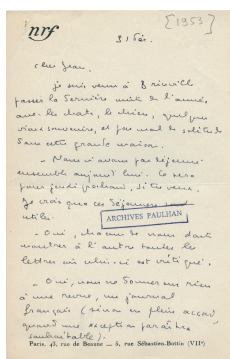 nrf
[1953]
31 Déc.
cher Jean,
je suis venu à Brinville
passer la dernière nuit de l'année
avec les chats, le chien, quelques
vieux souvenirs, et pas mal de solitude
dans cette grande maison.
- Nous n'avons pas déjeuné
ensemble aujourd'hui. Ce sera
pour jeudi prochain, si tu veux.
Je crois que ces déjeuners sont
utiles.
ARCHIVES PAULHAN
- Oui, chacun de nous doit
montrer à l'autre toutes les
lettres où celui-ci est critiqué.
- Oui, nous ne donnerons rien
à une revue, un journal
français (sinon en plein accord,
quand une exception paraîtra
souhaitable).
Paris, 43, rue de Beaune — 5, rue Sébastien-Bottin (VIIe)